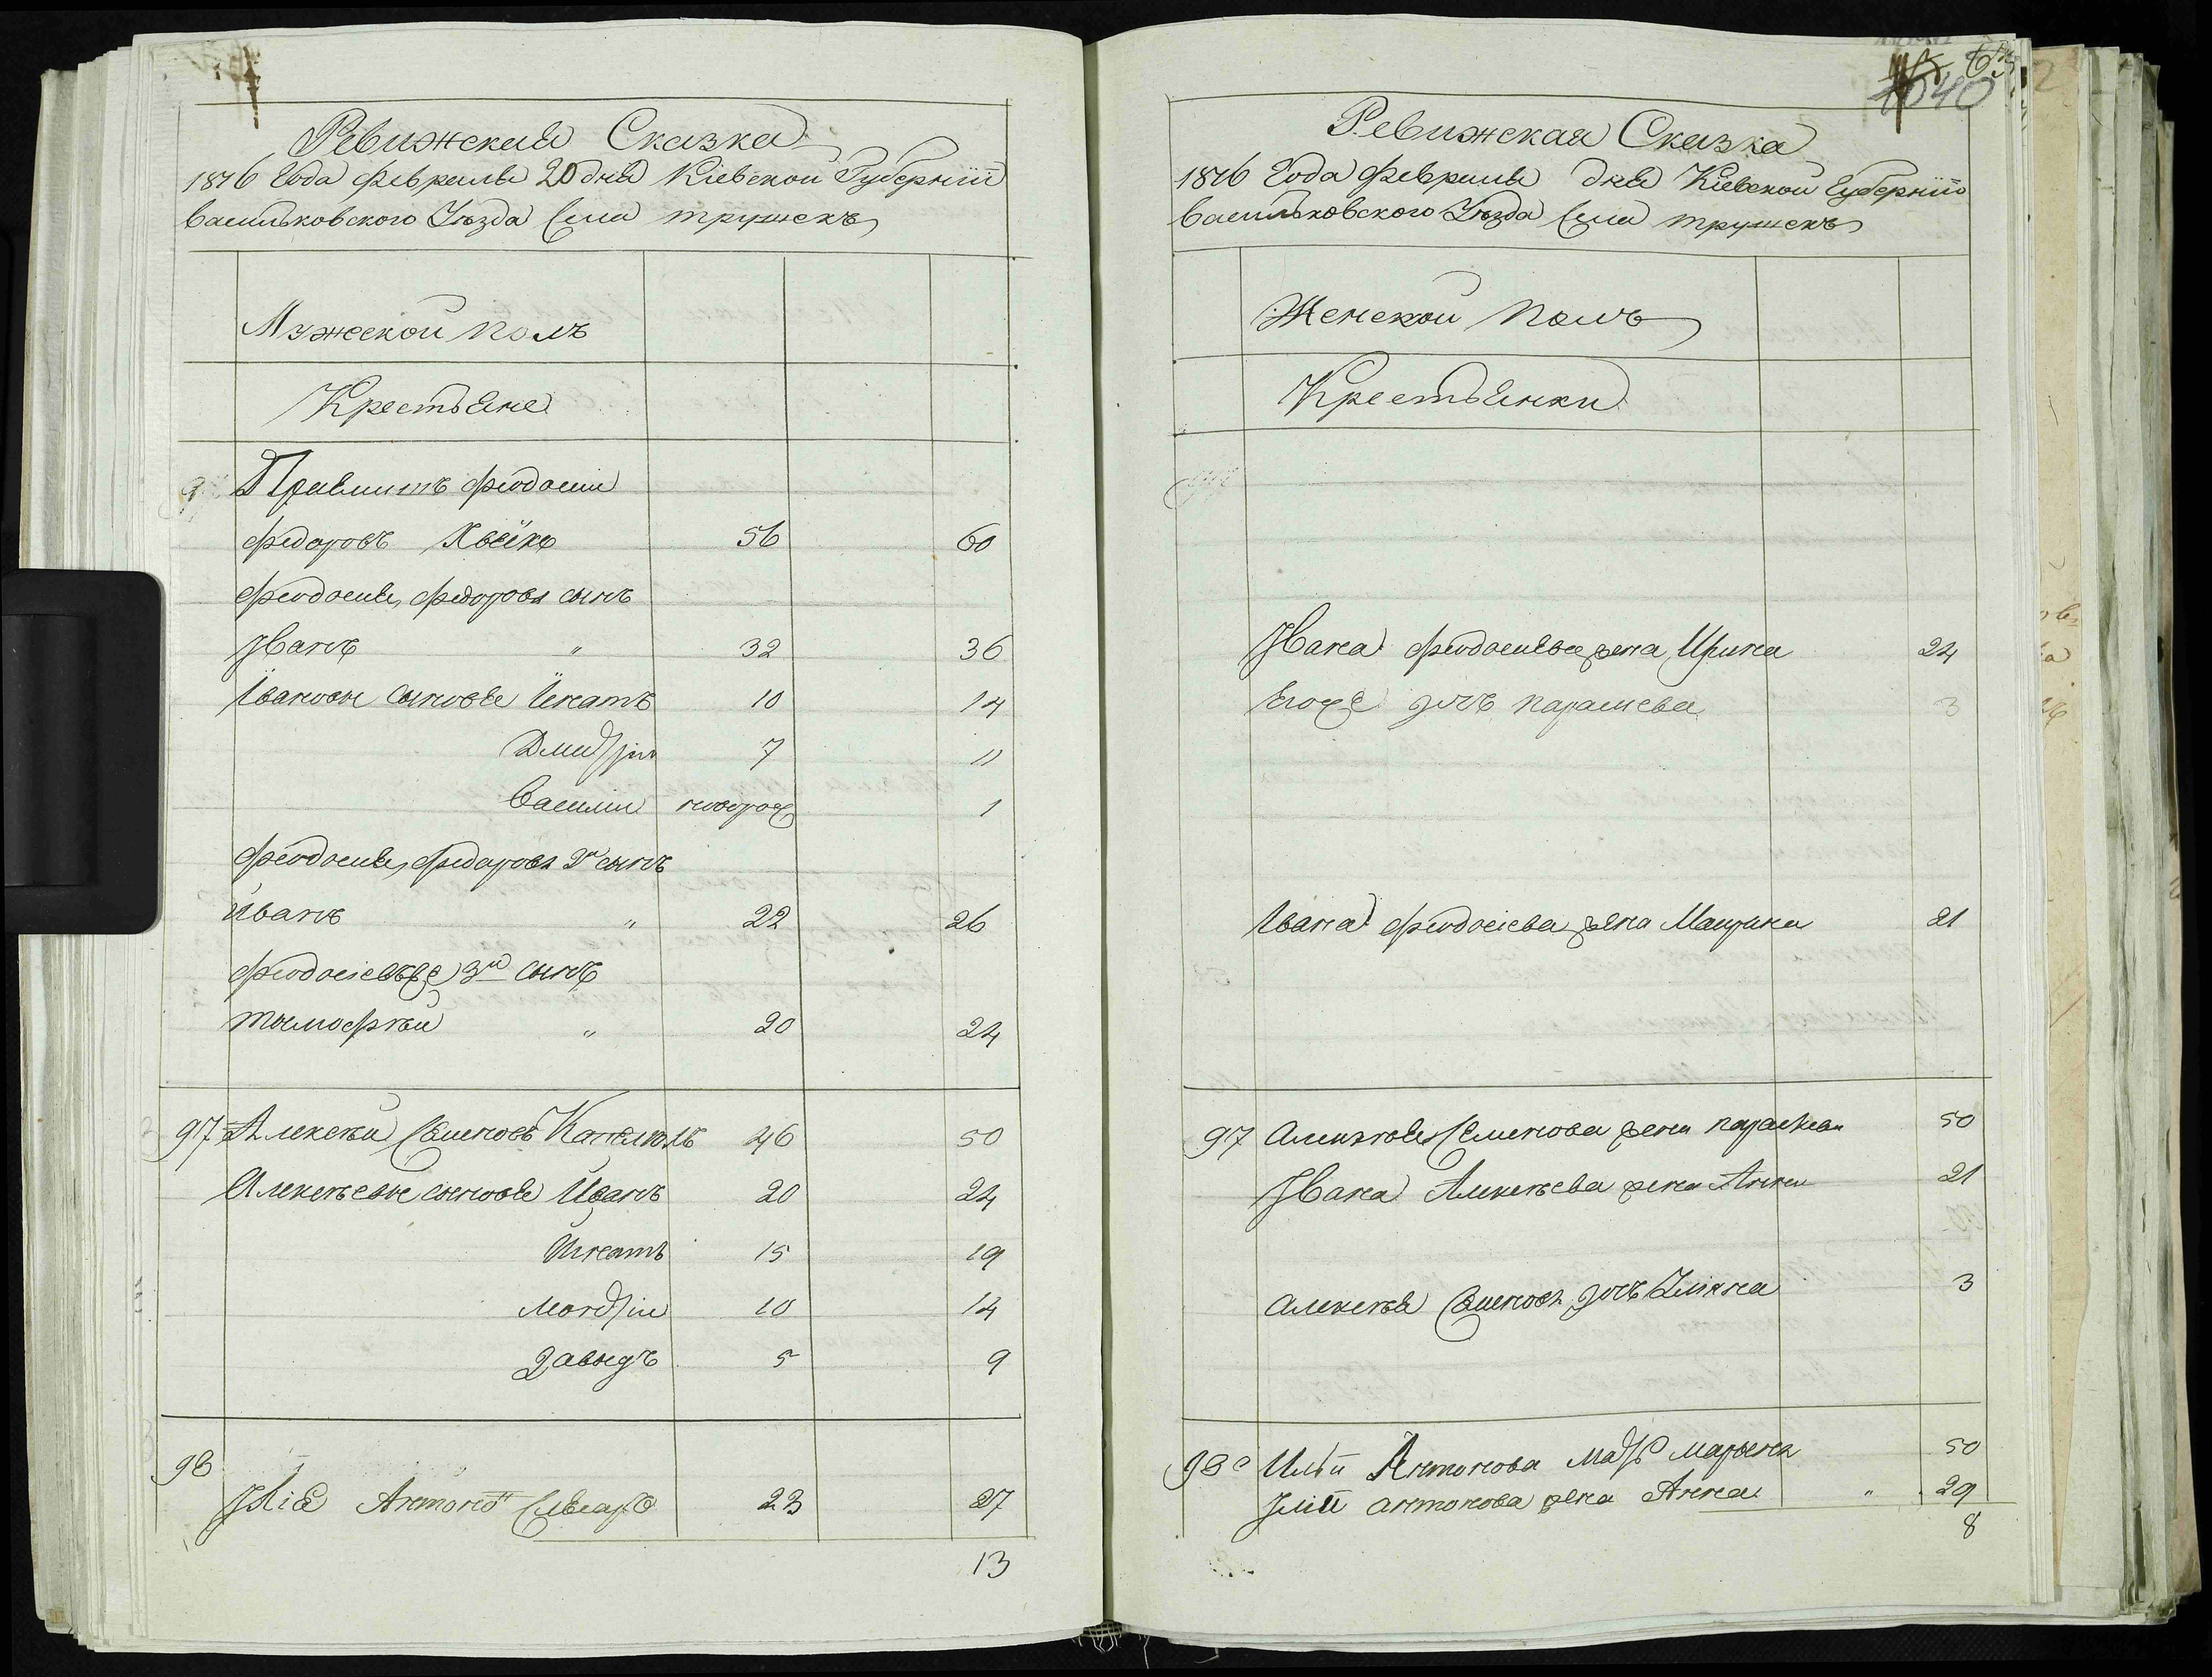 Ревижская Сказка
1816 Года февраля 20 дня Кіевской Губерніи
Васильковского Уезда Села трушекъ
Мужеской полъ
Крестьяне
Феодосій
Федоровъ 56 60
Феодосия Федорова сынъ
Иванъ " 32 36
Ивановы сыновья Игнатъ 10 14
Дмитрій 7 11
Василий новорож 1
Феодосия Федорова 2й сынъ
Иванъ " 22 26
Феодосіевъ 3й сынъ
тимофѣй " 20 24
97 Алексѣй Семеновъ 46 50
Алексѣевы сыновья Иванъ 20 24
Игнатъ 15 19
Дмитрій 10 14
Давыдъ 5 9
98
Илія Антоновъ 23 27
13
1040
Ревижская Сказка
1816 Года февраля дня Кіевской Губерніи
Васильковского Уезда Села трушекъ
Женской полъ
Крестьянки
Ивана Феодосиева жена Ирина 24
Его же дочь параскева 3
Ивана Феодосіева жена Мотрина 21
97 Алексѣя Семенова жена параскева 50
Ивана Алексѣева жена Анна 21
Алексѣя Семенова дочь Улияна 3
98 Ильи Антонова мать марьяна 50
Иліи антонова жена Анна " 29
8